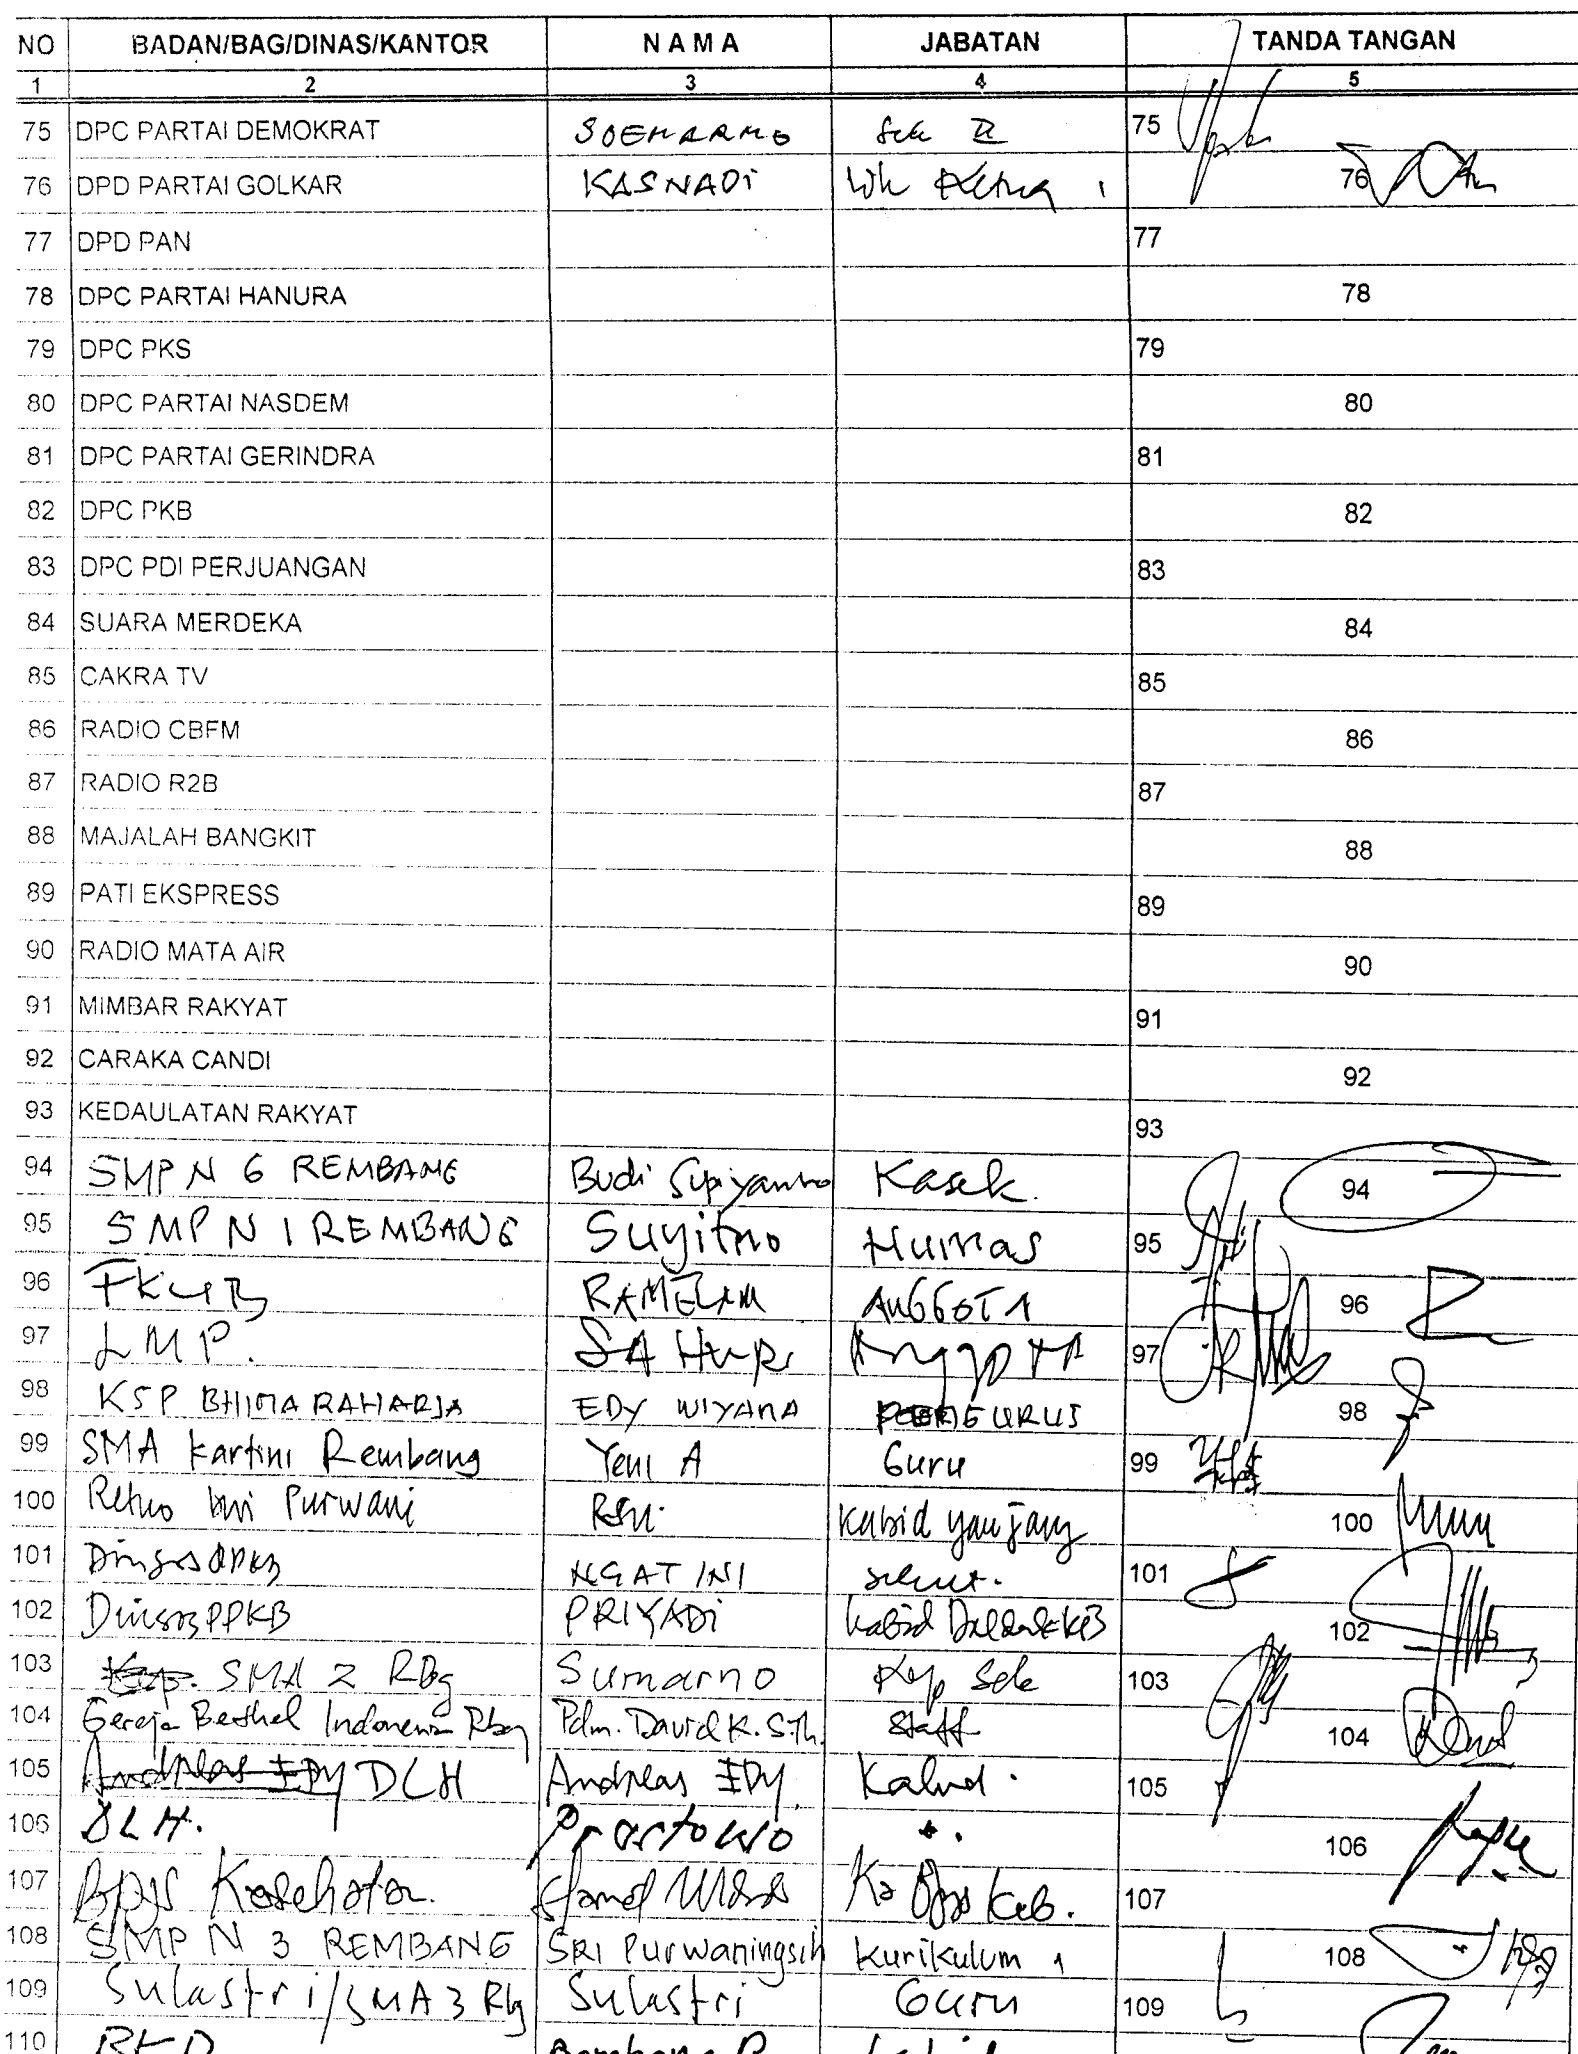 NO BADAN/BAG/DINAS/KANTOR N A M A JABATAN TANDA TANGAN
1 2 3 4 5
75 DPC PARTAI DEMOKRAT SOEMARMO Sek II 75
76 DPD PARTAI GOLKAR KASNADI Wk Ketua 1 76
77 DPD PAN 77
78 DPC PARTAI HANURA 78
79 DPC PKS 79
80 DPC PARTAI NASDEM 80
81 DPC PARTAI GERINDRA 81
82 DPC PKB 82
83 DPC PDI PERJUANGAN 83
84 SUARA MERDEKA 84
85 CAKRA TV 85
86 RADIO CBFM 86
87 RADIO R2B 87
88 MAJALAH BANGKIT 88
89 PATI EKSPRESS 89
90 RADIO MATA AIR 90
91 MIMBAR RAKYAT 91
92 CARAKA CANDI 92
93 KEDAULATAN RAKYAT 93
94 SMP N 6 REMBANG Budi Kasek. 94
95 SMP N 1 REMBANG Suyitno Humas 95
96 FKUB RAMELAN ANGGOTA 96
97 LMP. SAHURI Anggota 97
98 KSP BHIMA RAHARJA EDY WIYANA PENGURUS 98
99 SMA Kartini Rembang Yeni A Guru 99
100 Retno Purwani Kabid 100
101 NGATINI 101
102 Dinsos PPKB PRIYADI Kabid 102
103 SMA 2 Rbg Sumarno Kep Sek 103
104 Gereja Bethel Indonesia Rbg Pdm. David K. S.Th. Staff 104
105 Andreas EDY DLH Andreas EDY Kabid. 105
106 DLH. Prastowo 106
107 Bpjs Kesehatan. Ka Bpjs Keb. 107
108 SMP N 3 REMBANG SRI Purwaningsih Kurikulum 1 108
109 Sulastri/SMA 3 Rbg Sulastri Guru 109
110 BKD